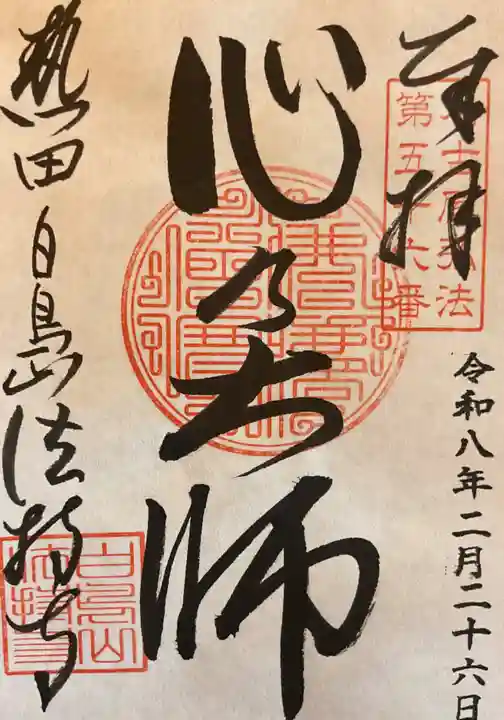 奉拝
第五十六番
弘法
令和八年二月二十六日
心乃大師
熱田 白鳥山 法持寺
白鳥山
法持寺